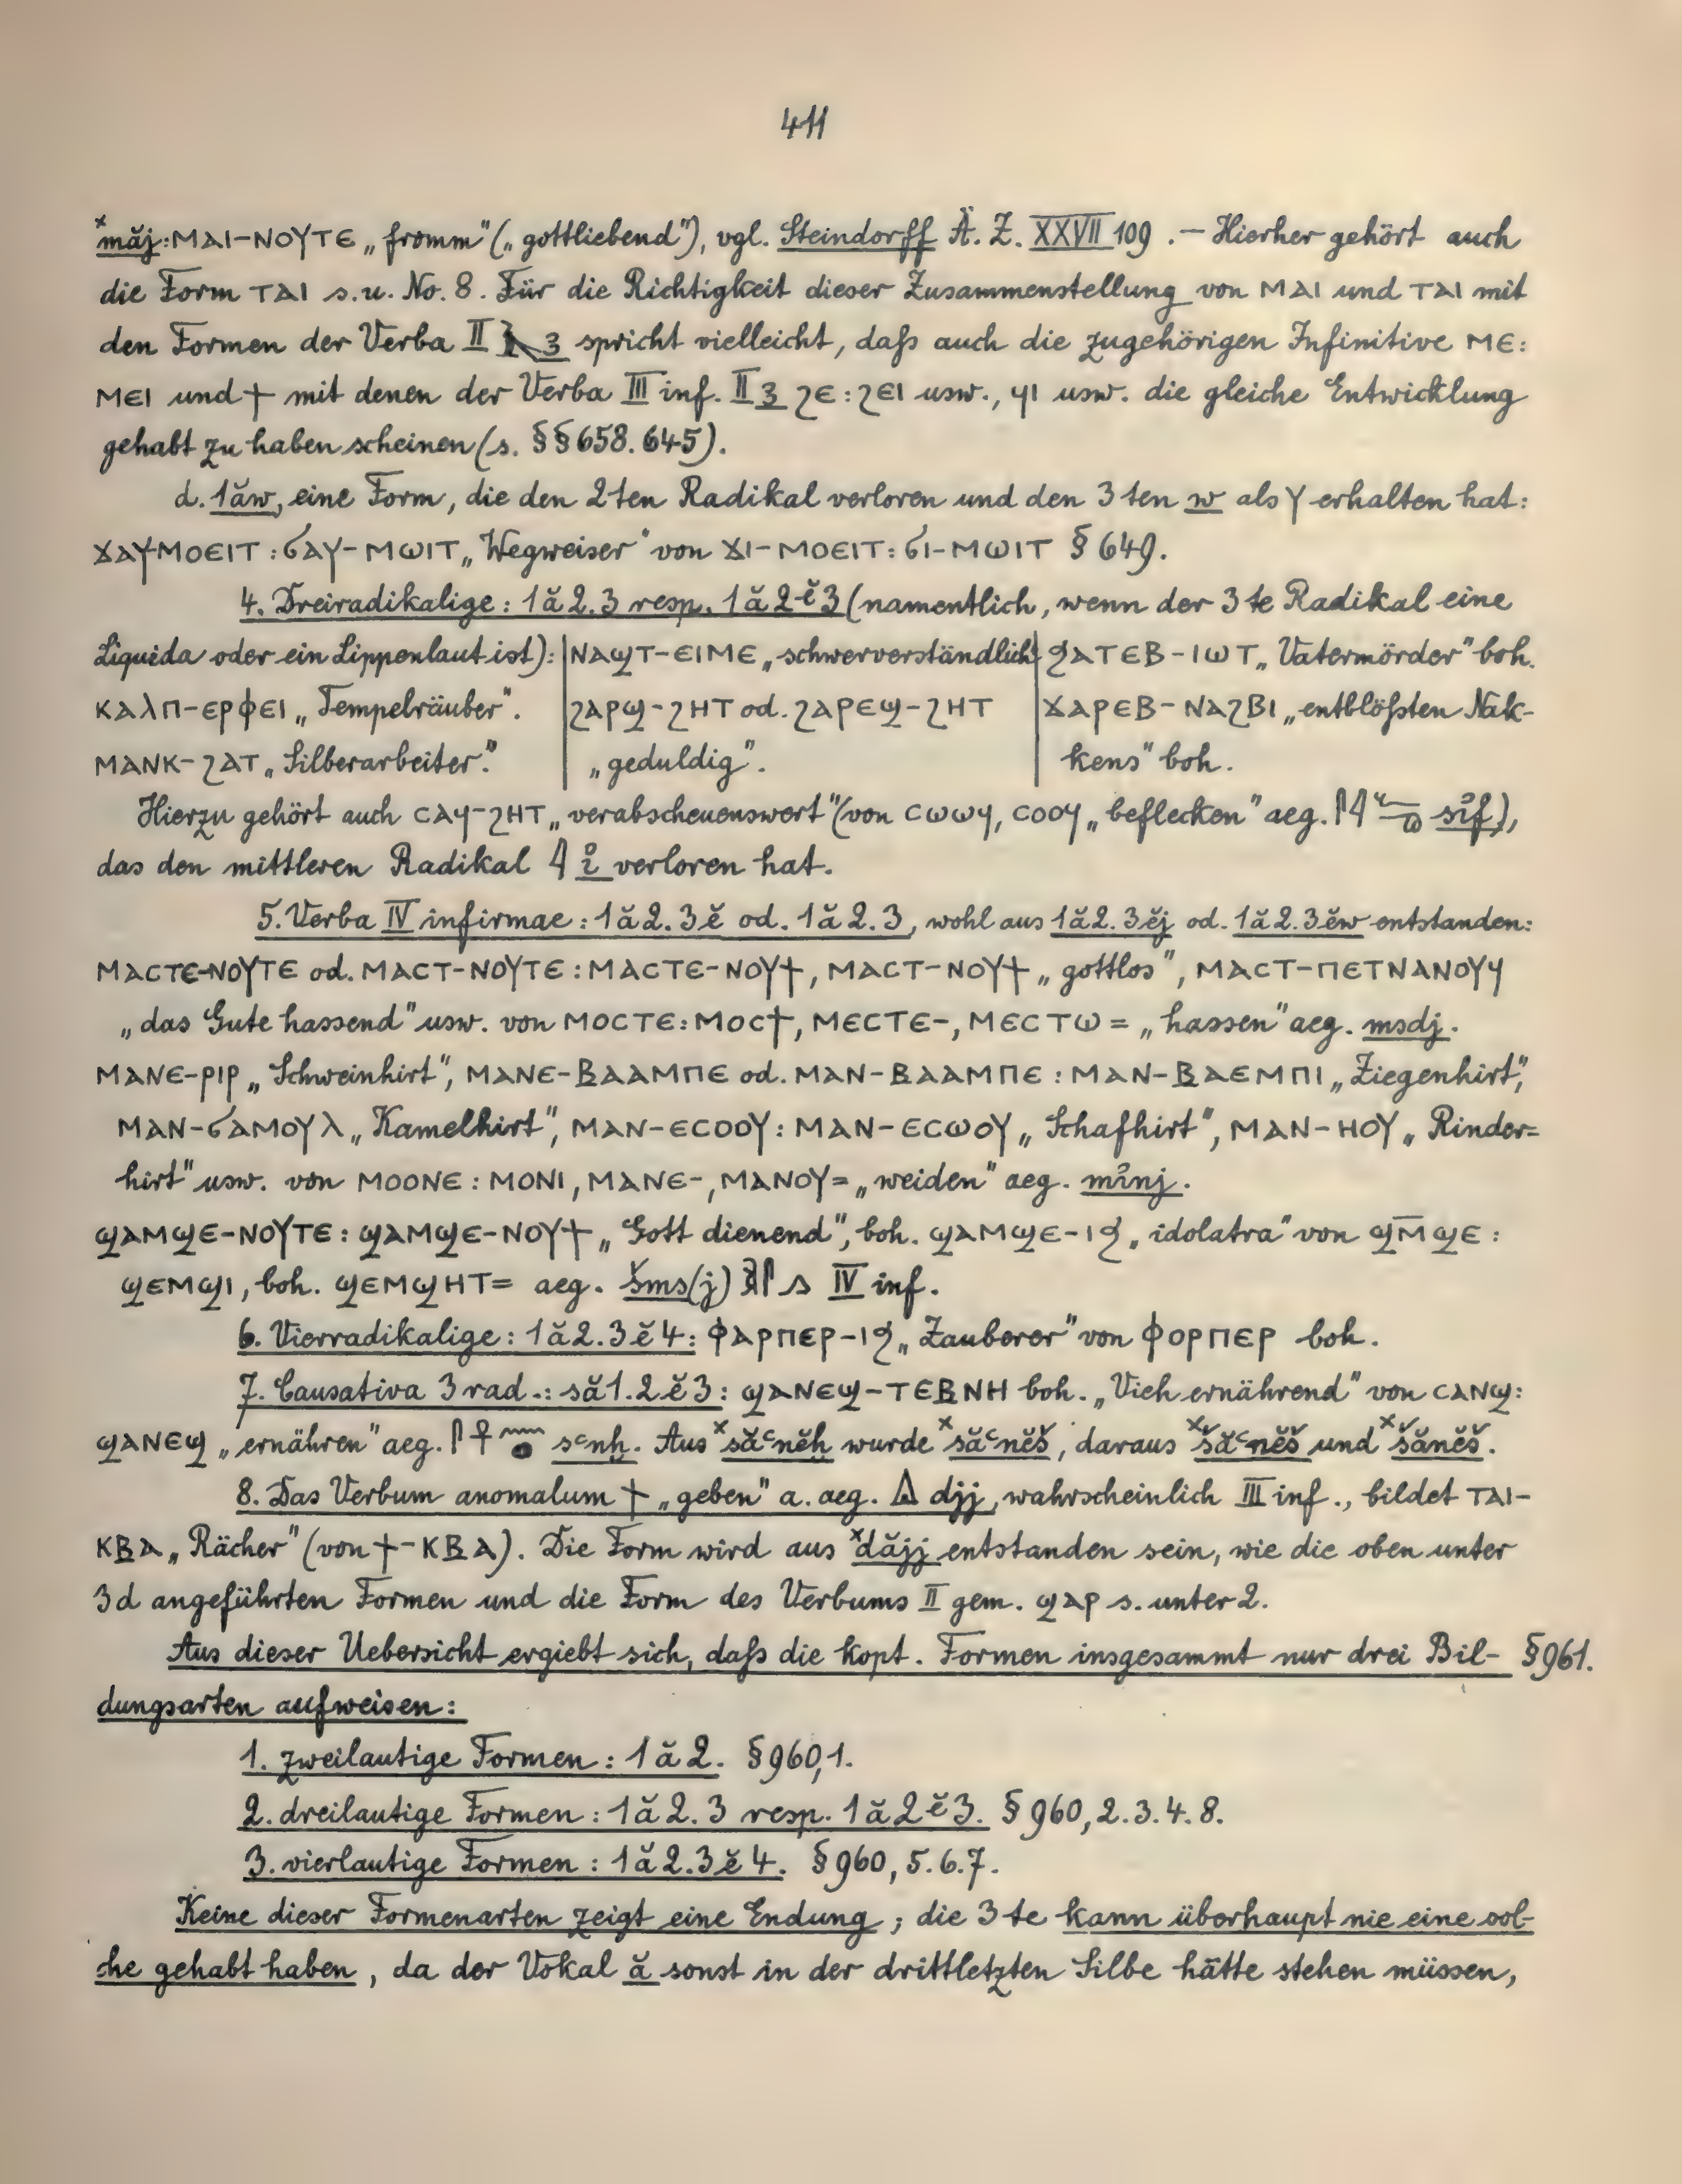 411
ˣmăj: ⲙⲁⲓ-ⲛⲟⲩⲧⲉ „fromm" („gottliebend"), vgl. Steindorff Ä. Z. XXVII 109. — Hierher gehört auch
die Form ⲧⲁⲓ s. u. No. 8. Für die Richtigkeit dieser Zusammenstellung von ⲙⲁⲓ und ⲧⲁⲓ mit
den Formen der Verba II 𓄿 ꜣ spricht vielleicht, daß auch die zugehörigen Infinitive ⲙⲉ:
ⲙⲉⲓ und ϯ mit denen der Verba III inf. II ꜣ ϩⲉ: ϩⲉⲓ usw., ϥⲓ usw. die gleiche Entwicklung
gehabt zu haben scheinen (s. §§ 658. 645).
d. 1ăw, eine Form, die den 2ten Radikal verloren und den 3ten w als ⲩ erhalten hat:
ϫⲁⲩⲙⲟⲉⲓⲧ: ϭⲁⲩ-ⲙⲱⲓⲧ „Wegweiser" von ϫⲓ-ⲙⲟⲉⲓⲧ: ϭⲓ-ⲙⲱⲓⲧ § 649.
4. Dreiradikalige: 1ă2.3 resp. 1ă2ĕ3 (namentlich, wenn der 3te Radikal eine
Liquida oder ein Lippenlaut ist): | ⲛⲁϣⲧ-ⲉⲓⲙⲉ „schwerverständlich" | ϧⲁⲧⲉⲃ-ⲓⲱⲧ „Vatermörder" boh.
ⲕⲁⲗⲡ-ⲉⲣⲫⲉⲓ „Tempelräuber". | ϩⲁⲣϣ-ϩⲏⲧ od. ϩⲁⲣⲉϣ-ϩⲏⲧ | ϫⲁⲣⲉⲃ-ⲛⲁϩⲃⲓ „entblößten Nak-
ⲙⲁⲛⲕ-ϩⲁⲧ „Silberarbeiter". | „geduldig". | kens" boh.
Hierzu gehört auch ⲥⲁϥ-ϩⲏⲧ „verabscheuenswert" (von ⲥⲱⲱϥ, ⲥⲟⲟϥ „beflecken" aeg. 𓋴𓇋𓆑 sỉf),
das den mittleren Radikal 𓇋 ỉ verloren hat.
5. Verba IV infirmae: 1ă2.3ĕ od. 1ă2.3, wohl aus 1ă2.3ĕj od. 1ă2.3ĕw entstanden:
ⲙⲁⲥⲧⲉ-ⲛⲟⲩⲧⲉ od. ⲙⲁⲥⲧ-ⲛⲟⲩⲧⲉ: ⲙⲁⲥⲧⲉ-ⲛⲟⲩϯ, ⲙⲁⲥⲧ-ⲛⲟⲩϯ „gottlos", ⲙⲁⲥⲧ-ⲡⲉⲧⲛⲁⲛⲟⲩϥ
„das Gute hassend" usw. von ⲙⲟⲥⲧⲉ: ⲙⲟⲥϯ, ⲙⲉⲥⲧⲉ-, ⲙⲉⲥⲧⲱ= „hassen" aeg. msdj.
ⲙⲁⲛⲉ-ⲣⲓⲣ „Schweinhirt", ⲙⲁⲛⲉ-ⲃⲁⲁⲙⲡⲉ od. ⲙⲁⲛ-ⲃⲁⲁⲙⲡⲉ: ⲙⲁⲛ-ⲃⲁⲉⲙⲡⲓ „Ziegenhirt",
ⲙⲁⲛ-ϭⲁⲙⲟⲩⲗ „Kamelhirt", ⲙⲁⲛ-ⲉⲥⲟⲟⲩ: ⲙⲁⲛ-ⲉⲥⲱⲟⲩ „Schafhirt", ⲙⲁⲛ-ⲏⲟⲩ „Rinder=
hirt" usw. von ⲙⲟⲟⲛⲉ: ⲙⲟⲛⲓ, ⲙⲁⲛⲉ-, ⲙⲁⲛⲟⲩ= „weiden" aeg. mỉnj.
ϣⲁⲙϣⲉ-ⲛⲟⲩⲧⲉ: ϣⲁⲙϣⲉ-ⲛⲟⲩϯ „Gott dienend", boh. ϣⲁⲙϣⲉ-ⲓϧ „idolatra" von ϣⲙ̄ϣⲉ:
ϣⲉⲙϣⲓ, boh. ϣⲉⲙϣⲏⲧ= aeg. šms(j) 𓌞𓋴 𓂻 IV inf.
6. Vierradikalige: 1ă2.3ĕ4: ⲫⲁⲣⲡⲉⲣ-ⲓϧ „Zauberer" von ⲫⲟⲣⲡⲉⲣ boh.
7. Causativa 3 rad.: să1.2ĕ3: ϣⲁⲛⲉϣ-ⲧⲉⲃⲛⲏ boh. „Vieh ernährend" von ⲥⲁⲛϣ:
ϣⲁⲛⲉϣ „ernähren" aeg. 𓋴𓋹𓈖𓐍 sꜥnḫ. Aus ˣsăꜥnĕḫ wurde ˣsăꜥnĕš, daraus ˣšăꜥnĕš und ˣšănĕš.
8. Das Verbum anomalum ϯ „geben" a. aeg. 𓏙 djj, wahrscheinlich III inf., bildet ⲧⲁⲓ-
ⲕⲃⲁ „Rächer" (von ϯ-ⲕⲃⲁ). Die Form wird aus ˣdăjj entstanden sein, wie die oben unter
3d angeführten Formen und die Form des Verbums II gem. ϣⲁⲣ s. unter 2.
Aus dieser Uebersicht ergiebt sich, daß die kopt. Formen insgesammt nur drei Bil- § 961.
dungsarten aufweisen:
1. zweilautige Formen: 1ă2. § 960,1.
2. dreilautige Formen: 1ă2.3 resp. 1ă2ĕ3. § 960, 2.3.4.8.
3. vierlautige Formen: 1ă2.3ĕ4. § 960, 5.6.7.
Keine dieser Formenarten zeigt eine Endung; die 3te kann überhaupt nie eine sol-
che gehabt haben, da der Vokal ă sonst in der drittletzten Silbe hätte stehen müssen,